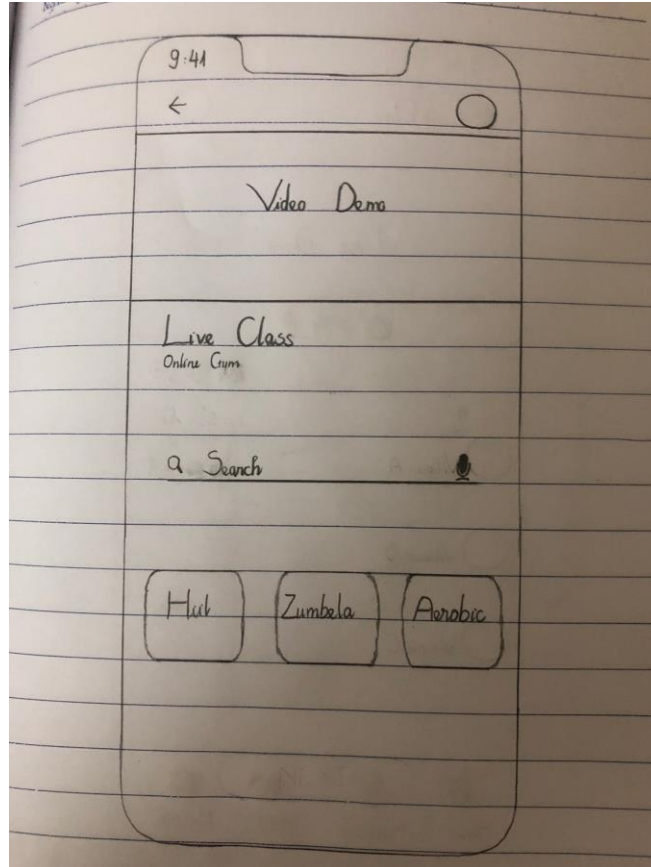 9:41
←
Video Demo
Live Class
Online Gym
Search
Zumbela
Aerobic